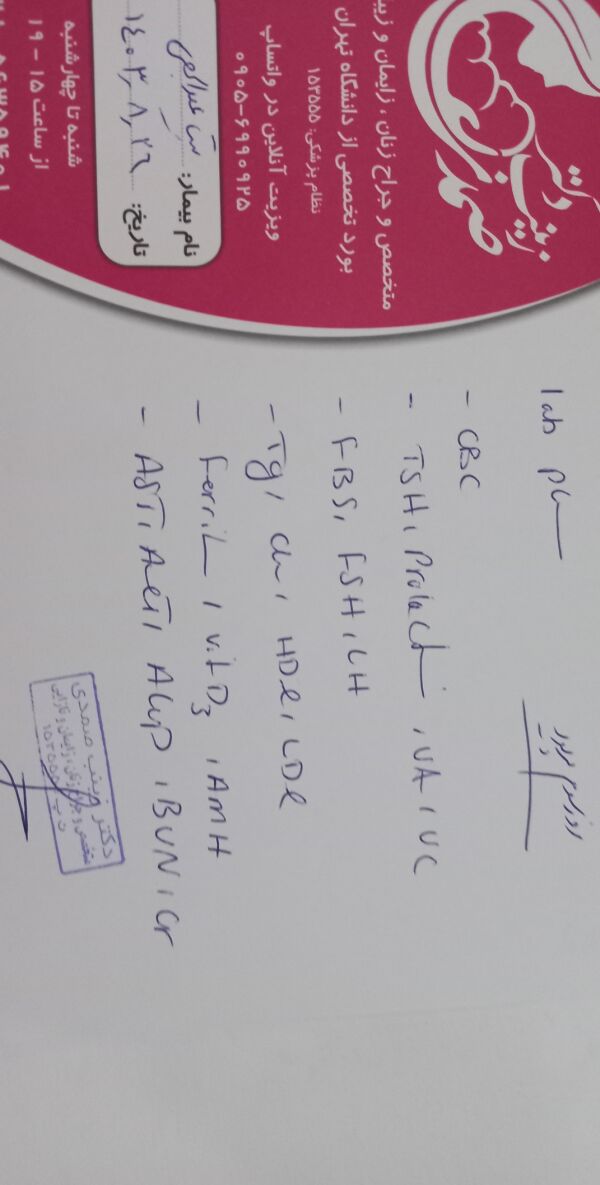 دکتر
زینب
صمدی
متخصص و جراح زنان ، زایمان و زیبا
بورد تخصصی از دانشگاه تهران
نظام پزشکی: ۱۵۳۵۵۵
ویزیت آنلاین در واتساپ
۰۹۰۵-۶۹۹۰۹۲۵
نام بیمار:
تاریخ: ۱۴۰۳,۸,۲۶
شنبه تا چهارشنبه
از ساعت ۱۵ - ۱۹
lab
روز سوم پریود
- CBC
- TSH, Prolactin, UA, UC
- FBS, FSH, LH
- Tg, Ch, HDL, LDL
- Ferritin, vit D3, AMH
- AST, ALT, ALP, BUN, Cr
دکتر زینب صمدی
متخصص و جراح زنان، زایمان و نازایی
ن پ ۱۵۳۵۵۵